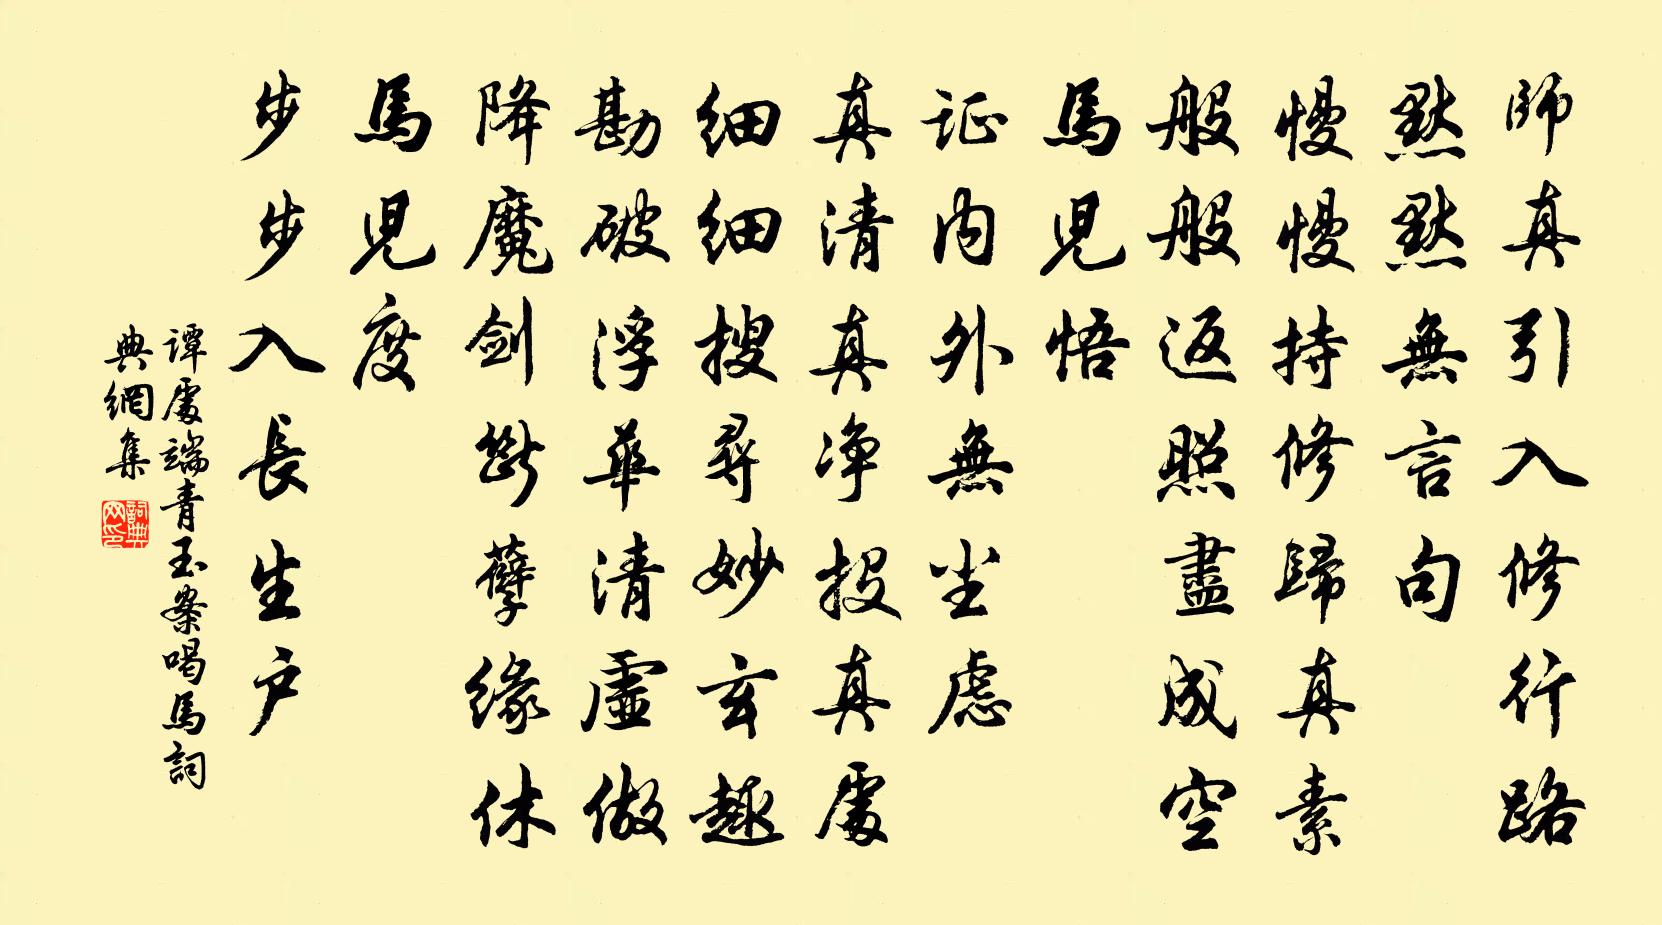 師真引入修行路
默默無言句
慢慢持修歸真素
般般返照盡成空
馬兒悟
证內外無尘慮
真清真净投真處
細細搜尋妙玄趣
勘破浮華清虛做
降魔劍斷孽緣休
馬兒度
步步入長生户
譚處端青玉案喝馬詞
典網集
詞典网印